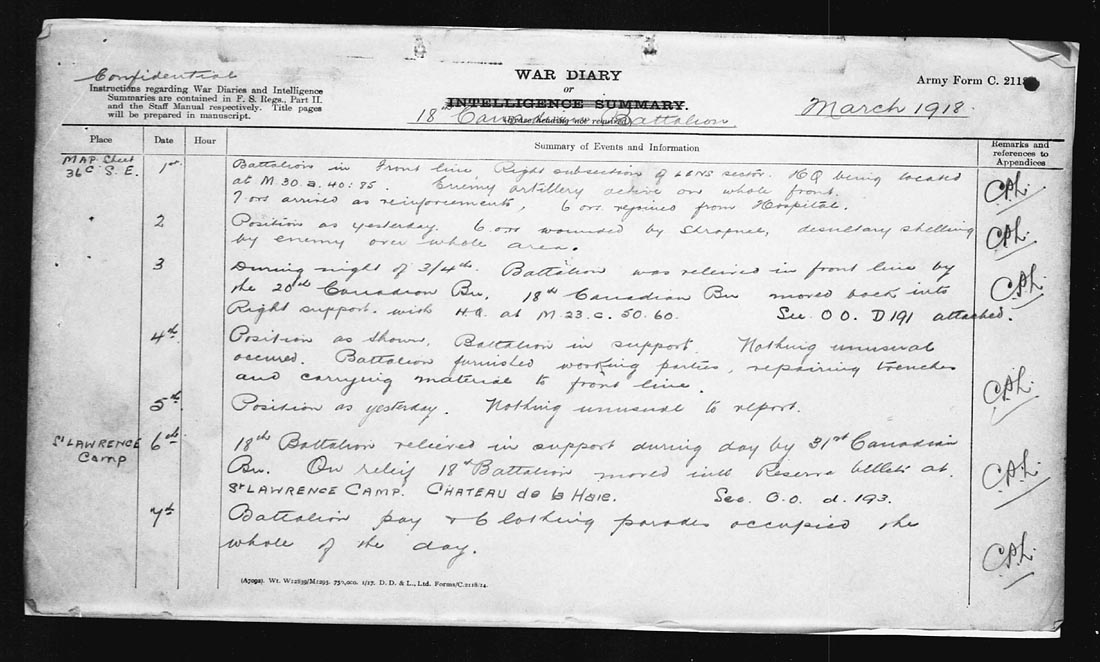 Confidential
Instructions regarding War Diaries and Intelligence
Summaries are contained in F. S. Regs., Part II.
and the Staff Manual respectively. Title pages
will be prepared in manuscript.
WAR DIARY
or
INTELLIGENCE SUMMARY.
(Erase heading not required.)
18th Canadian Battalion.
Army Form C. 2118
March 1918.
Place Date Hour Summary of Events and Information Remarks and references to Appendices
MAP Sheet
36c S.E.
1st Battalion in Front line Right subsection of LENS sector. HQ being located
at M 30.a.40.85. Enemy artillery active on whole front.
7 ors arrived as reinforcements, 6 ors. rejoined from Hospital.
2 Position as yesterday. 6 ors wounded by Shrapnel, desultary shelling
by enemy over whole area.
3 During night of 3/4th. Battalion was relieved in front line by
the 20th Canadian Bn. 18th Canadian Bn moved back into
Right support. with H.Q. at M.23.c.50.60. See O O. D191 attached.
4th Position as shown, Battalion in support. Nothing unusual
occured. Battalion furnished working parties, repairing trenches
and carrying material to front line.
5th Position as yesterday. Nothing unusual to report.
St LAWRENCE
Camp
6th 18th Battalion relieved in support during day by 31st Canadian
Bn. On releif 18th Battalion moved into Reserve billets at.
St LAWRENCE CAMP. CHATEAU de la Haie. See O.O. d.193.
7th Battalion pay & Clothing parades occupied the
whole of the day.
(A7092) Wt. W12839/M1293. 750,000. 1/17. D. D. & L., Ltd. Forms/C.2118/14.